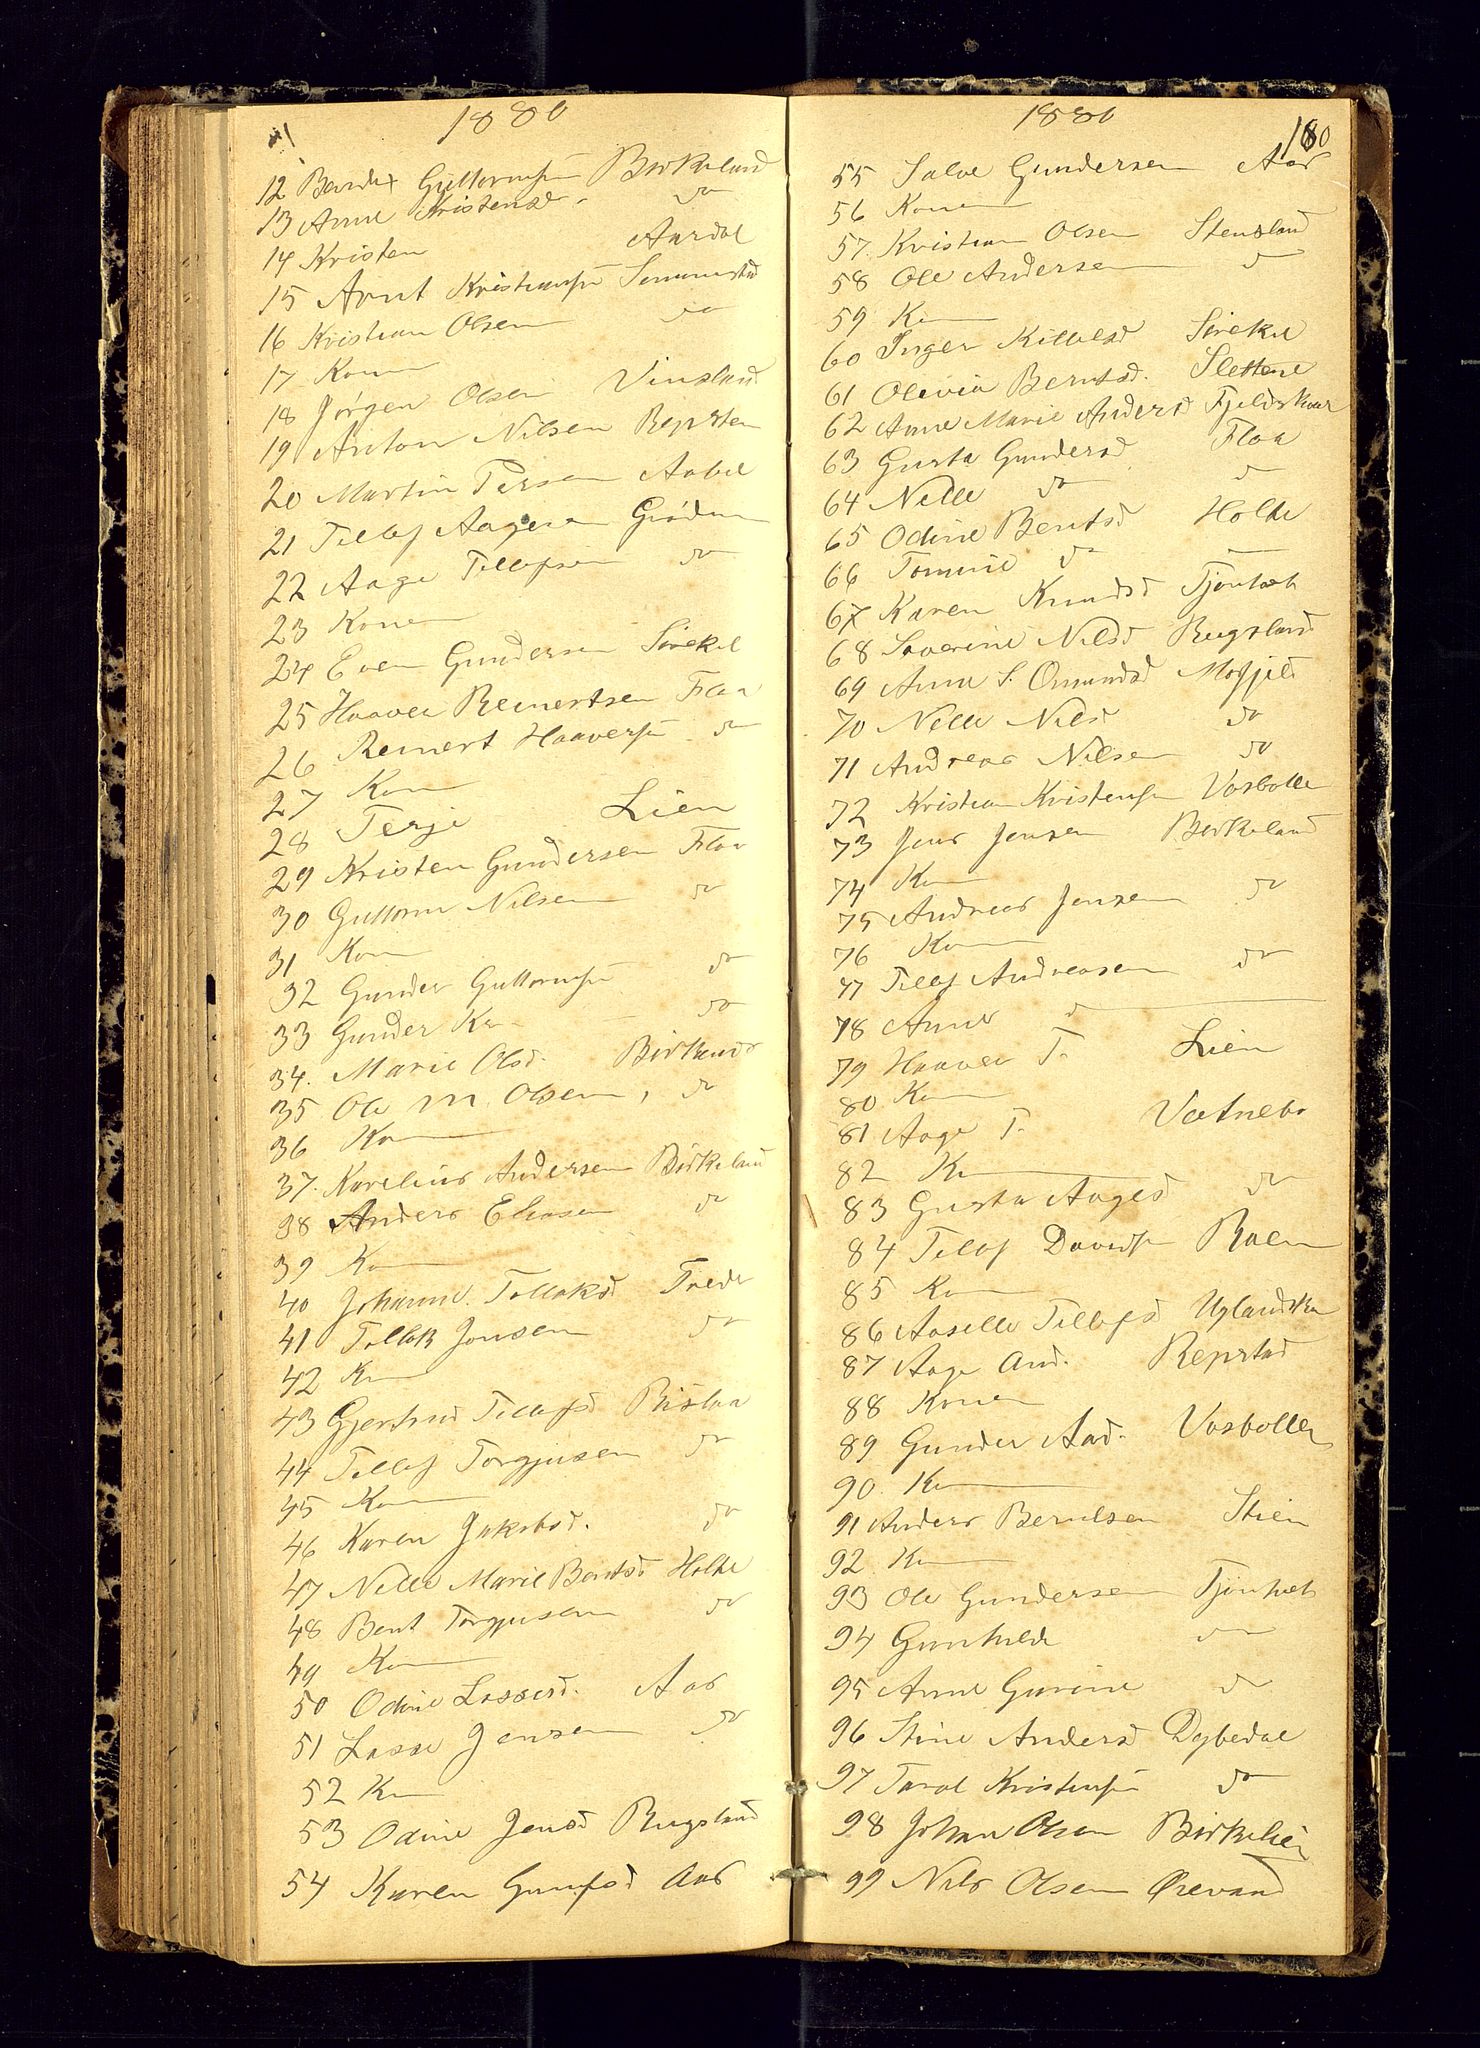 1886
12 Guttormsen Birkeland
13 Anne Kristensd. do
14 Kristen Aardal
15 Arnt Kristiansen
16 Kristian Olsen do
17 Konen
18 Jørgen Olsen Vinsland
19 Anton Nilsen Repsten
20 Martin Persen Aabel
21 Tellef Aagesen
22 Aage Tellefsen do
23 Konen
24 Even Gundersen Sirekil
25 Haaver Reinertsen Flaa
26 Reinert Haaversen do
27 Kon
28 Terje Lien
29 Kristen Gundersen Flaa
30 Guttorm Nilsen do
31 Kon
32 Gunder Guttormsen do
33 Gunder Kr do
34. Marie Olsd. Birkeland
35 Ole M. Olsen, do
36 Kon
37. Karelius Andersen Birkeland
38 Anders Eliasen do
39 Kon
40 Johanne Tellaksd
41 Tellak Jensen do
42 Kn
43 Gjertrud Tellefsd Bislaa
44 Tellef Torgjusen do
45 Kon
46 Karen Jakobsd. do
47 Nille Marie Bentsd Holte
48 Bent Torgjusen do
49 Kon
50 Odine Lassesd. Aas
51 Lasse Jensen do
52 Kn
53 Odine Jensd Rugsland
54 Karen Aas
1886
180
55 Salve Gundersen Aas
56 Konen
57. Kristian Olsen Stensland
58 Ole Andersen do
59 Kn
60 Inger Kittelsd Sirekil
61 Olevia Berntsd. Slettene
62 Anne Marie Andersd Fjeldskaar
63 Gusta Gundersd Flaa
64 Nille do do
65 Odine Bentsd Holte
66 Tomine do
67 Karen Knudsd Tjønhøt
68 Severine Nilsd Rugsland
69 Anne S. Omundsd Mosfjeld
70 Nille Nilsd do
71 Andreas Nilsen do
72 Kristian Kristensen Vasbotten
73 Jens Jensen Birkeland
74 Kn
75 Andreas Jensen do
76 Kn
77 Tellef Andreasen do
78 Anne do
79 Haaver T. Lien
80 Kn
81 Aage T. Vatnebo
82 Kn
83 Gusta Aagesd do
84 Tellef Davidsen Roen
85 Kn
86 Aaselle Tellefsd
87 Aage And. Repstad
88 Konen
89 Gunder Aad. Vasbotten
90. Kn
91 Anders Berntsen Stien
92. Kn
93 Ole Gundersen Tjønhøt
94 Gunhilde do
95 Anne Gurine do
96 Stine Andersd Dybedal
97 Taral Kristensen do
98 Johan Olsen Birkelien
99 Nils Olsen Ørevand